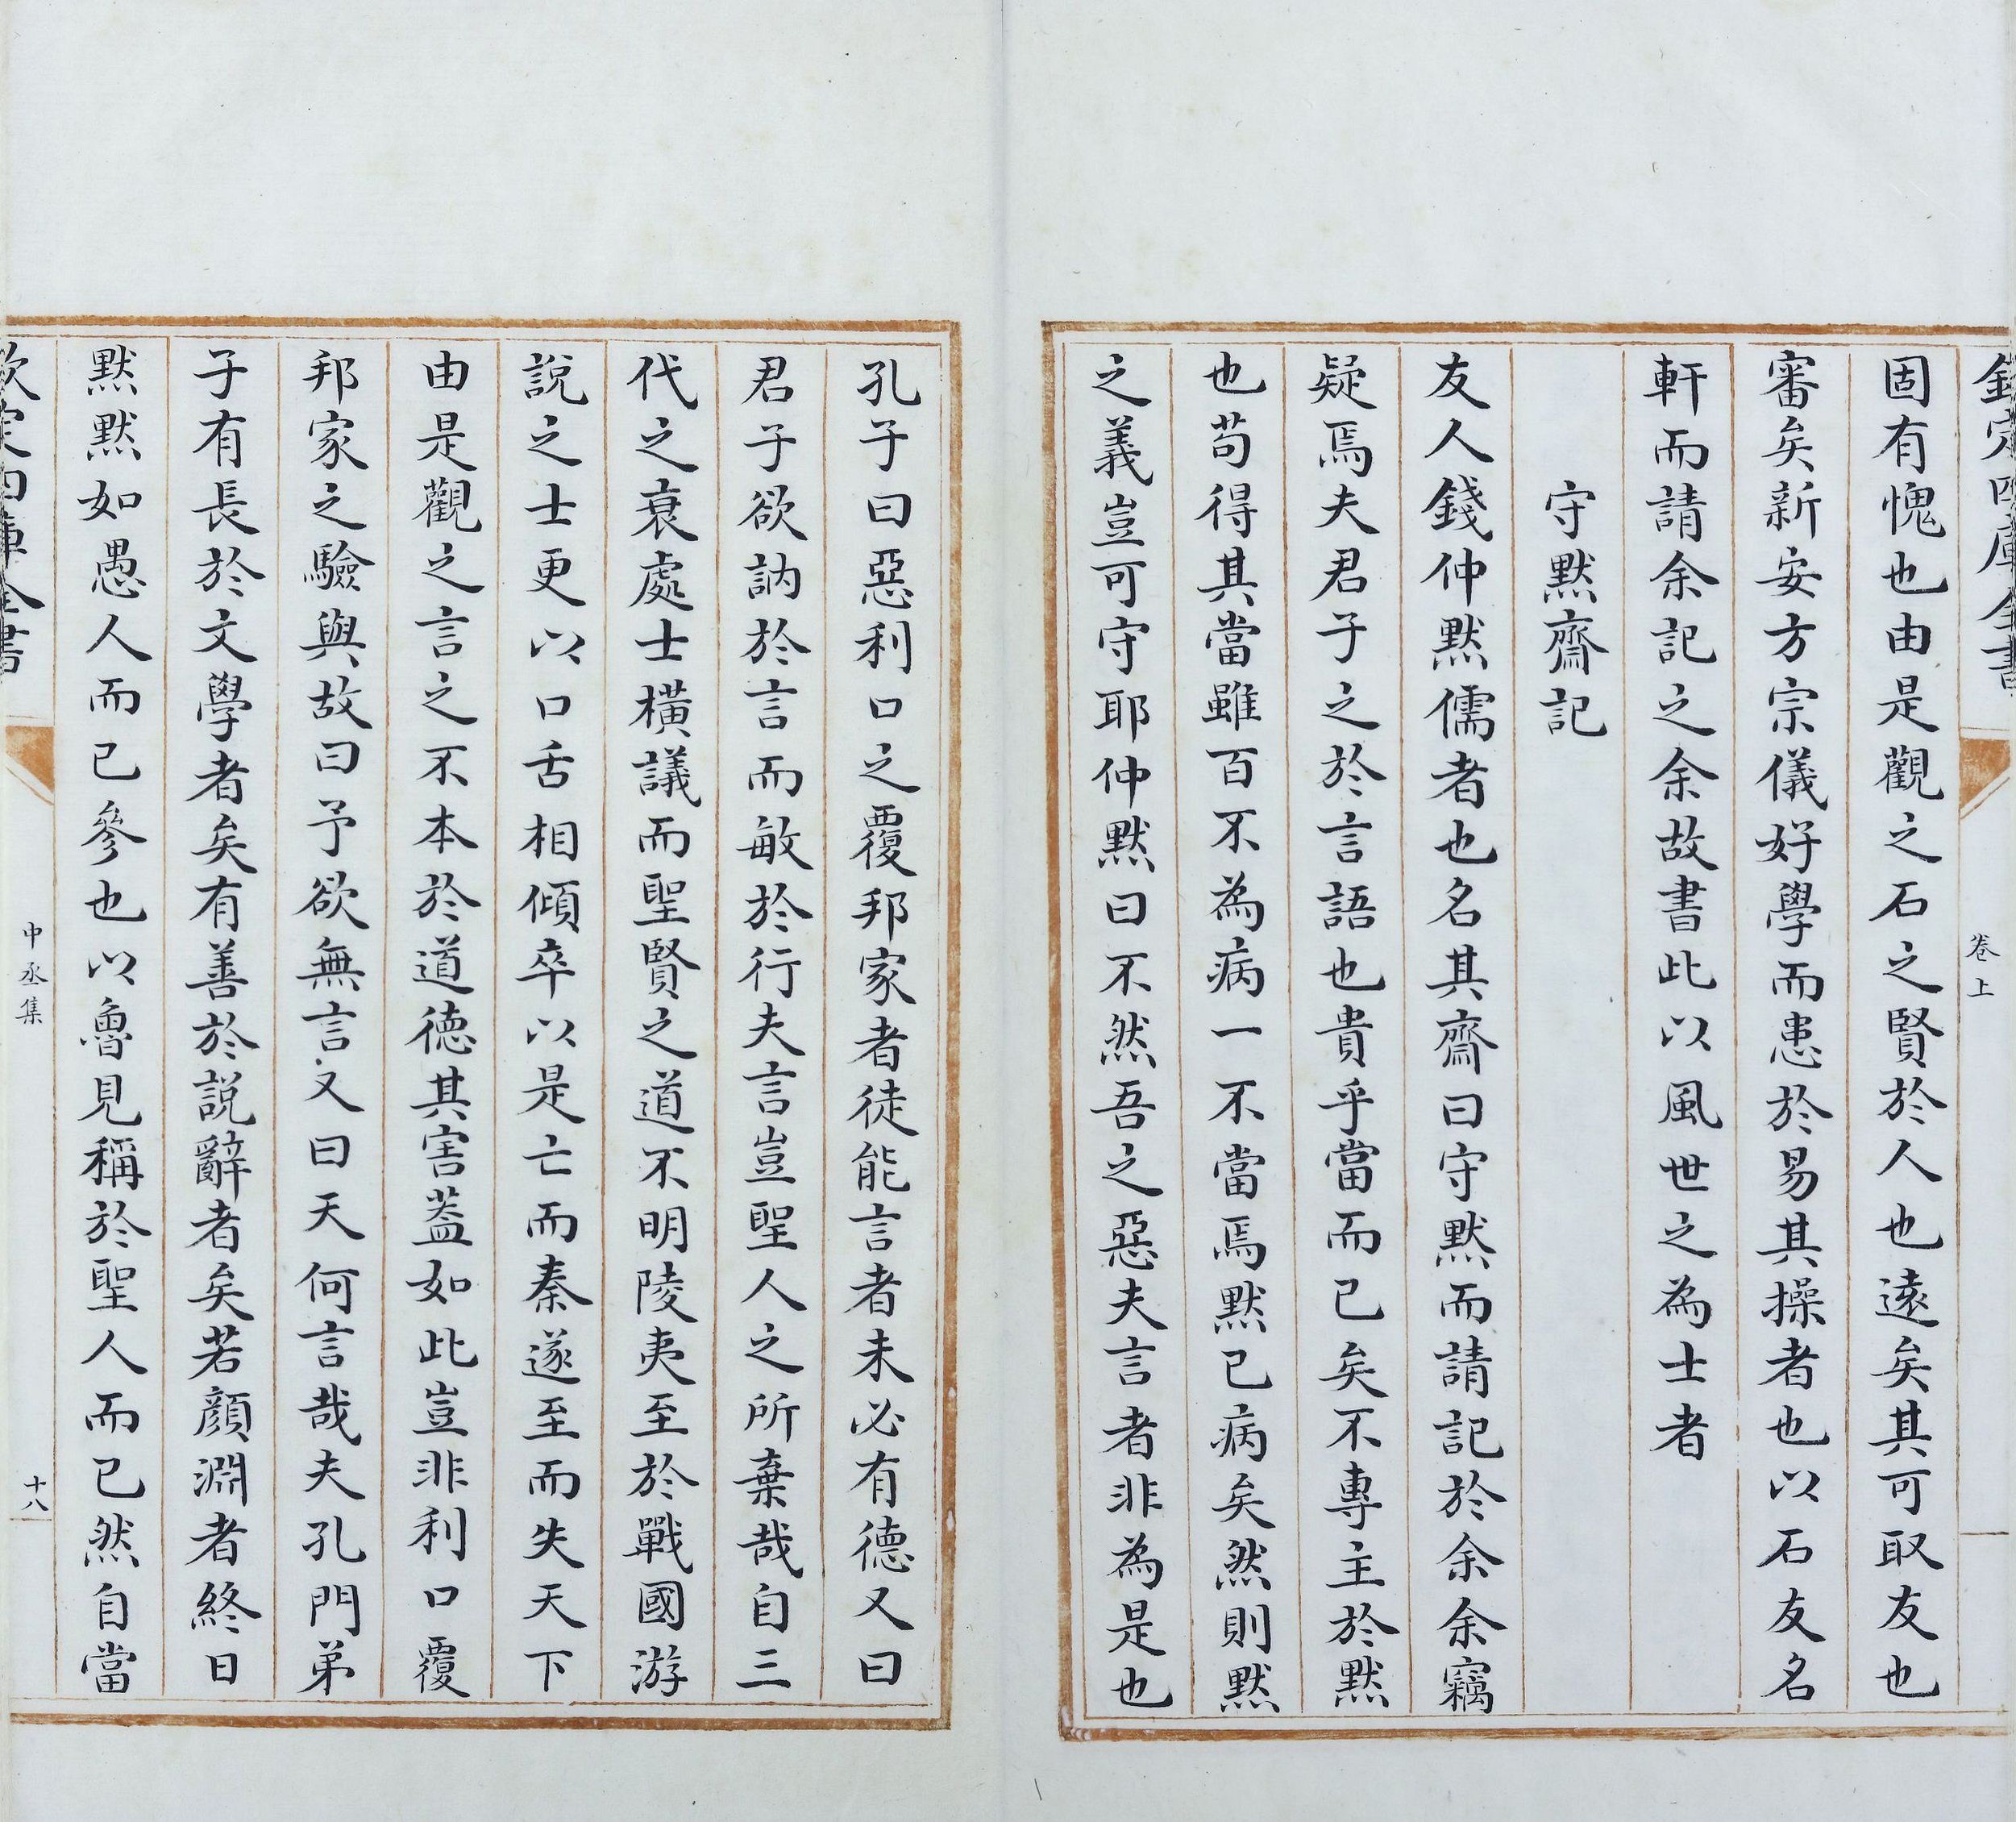 欽定四庫全書
卷上
固有愧也由是觀之石之賢於人也遠矣其可取友也
審矣新安方宗儀好學而患於易其操者也以石友名
軒而請余記之余故書此以風世之為士者
守黙齋記
友人錢仲黙儒者也名其齋曰守黙而請記於余余竊
疑焉夫君子之於言語也貴乎當而已矣不專主於黙
也苟得其當雖百不為病一不當焉黙已病矣然則黙
之義豈可守耶仲黙曰不然吾之惡夫言者非為是也
孔子曰惡利口之覆邦家者徒能言者未必有德又曰
君子欲訥於言而敏於行夫言豈聖人之所棄哉自三
代之衰處士橫議而聖賢之道不明陵夷至於戰國游
說之士更以口舌相傾卒以是亡而秦遂至而失天下
由是觀之言之不本於道德其害葢如此豈非利口覆
邦家之驗與故曰予欲無言又曰天何言哉夫孔門弟
子有長於文學者矣有善於說辭者矣若顔淵者終日
黙黙如愚人而已參也以魯見稱於聖人而已然自當
欽定四庫全書
中丞集
十八